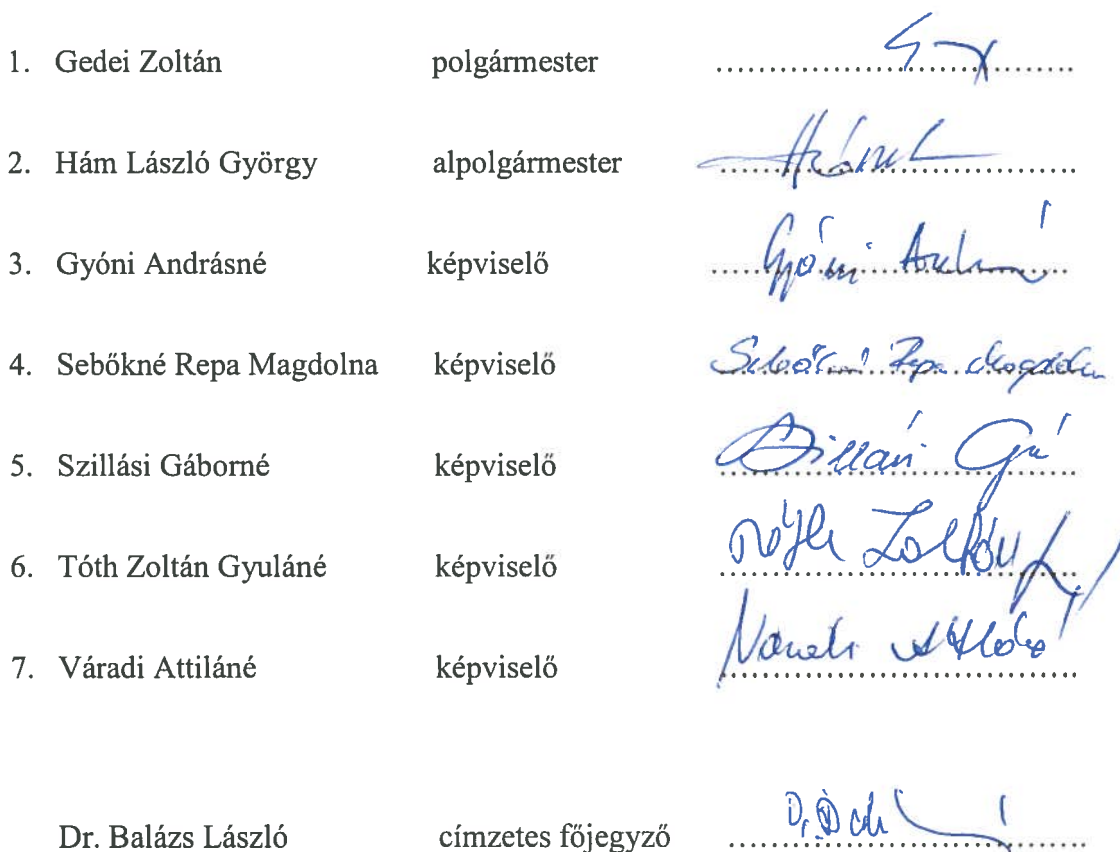 1. Gedei Zoltán polgármester
2. Hám László György alpolgármester
3. Gyóni Andrásné képviselő Gyóni
4. Sebőkné Repa Magdolna képviselő Sebőkné Repa Magdolna
5. Szillási Gáborné képviselő
6. Tóth Zoltán Gyuláné képviselő Tóth
7. Váradi Attiláné képviselő Váradi Attiláné
Dr. Balázs László címzetes főjegyző